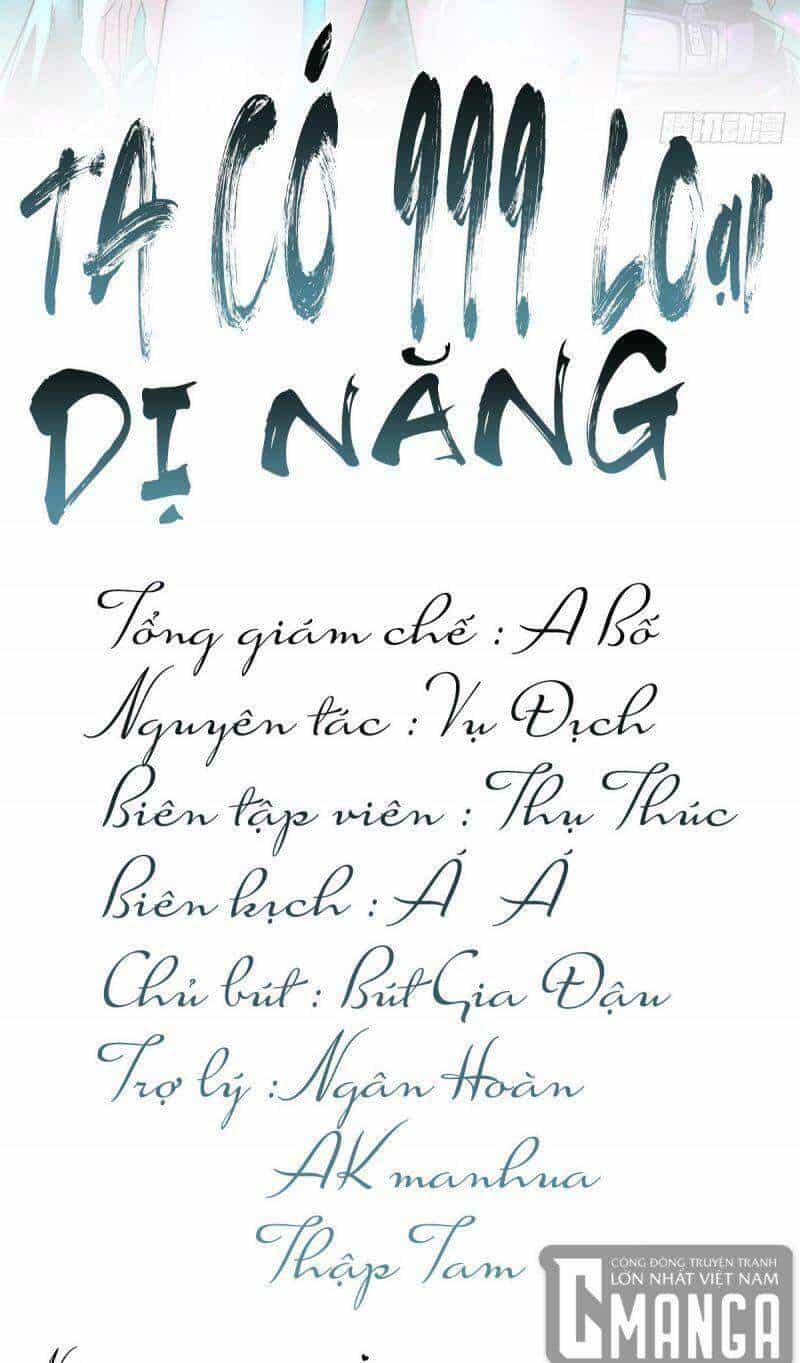 TA CÓ 999 LOẠI
DỊ NĂNG
Tổng giám chế : A Bố
Nguyên tác : Vụ Địch
Biên tập viên : Thụ Thúc
Biên kịch : Á Á
Chủ bút : Bút Gia Đậu
Trợ lý : Ngân Hoàn
AK manhua
Thập Tam
CỘNG ĐỒNG TRUYỆN TRANH
LỚN NHẤT VIỆT NAM
CMANGA